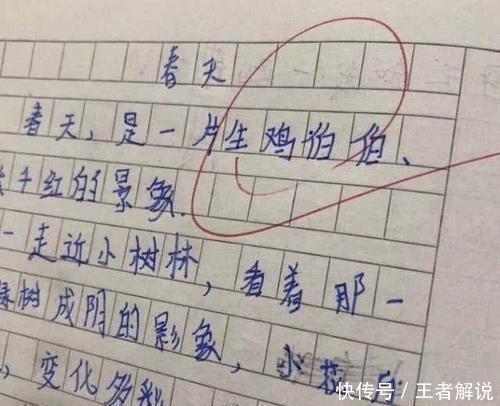 春天
春天,是一片生鸡泊伯、
千红的景象.
一走近小树林,看着那一
树成阴的影象,小花
,变化多
快传号/王者解说